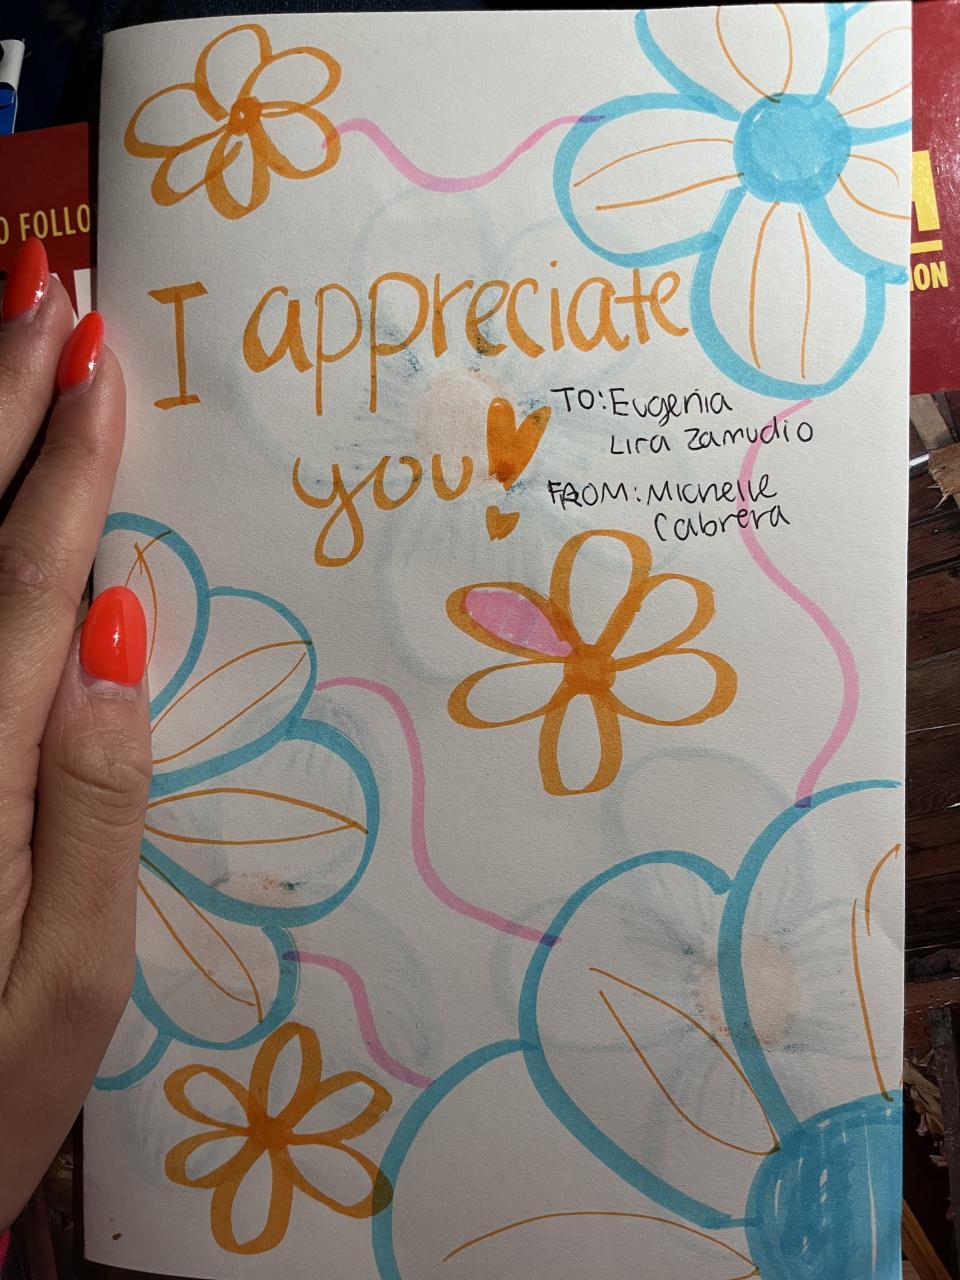 O FOLLO
ION
I appreciate
you
TO: Eugenia
Lira Zamudio
FROM: Michelle
Cabrera